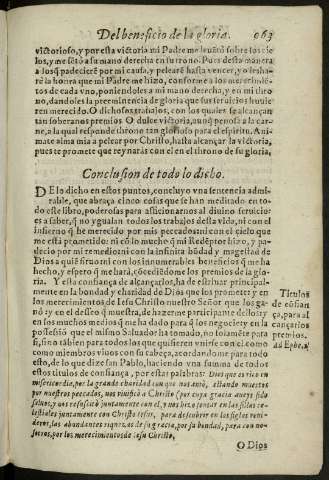 Del beneficio de la gloria. 963
victorioso, y por esta victoria mi Padre me leuātó sobre los cie
los, y me sētó a su mano derecha en su trono. Pues desta manera
a los q̄ padeciere por mi causa, y peleare hasta vencer, yo les ha-
rè la honra que mi Padre me hizo, conforme a los merecimiē-
tos de cada vno, poniendolos a mi mano derecha, y en mi thro
no, dandoles la preeminencia de gloria que sus seruicios huuie
ren merecido. O dichosos trabajos, con los quales se alcançan
tan soberanos premios. O dulce victoria, aunq̄ penosa a la car-
ne, a la qual responde throno tan glorioso para el espiritu. Ani-
mate alma mia a pelear por Christo, hasta alcançar la victoria,
pues te promete que reynaràs con el en el throno de su gloria.
Conclusion de todo lo dicho.
DE lo dicho en estos puntos, concluyo vna sentencia admi-
rable, que abraça cinco cosas que se han meditado en to-
do este libro, poderosas para aficionarnos al diuino seruicio:
es a saber, q̄ no ygualan todos los trabajos desta vida, ni con el
infierno q̄ he merecido por mis peccados: ni con el cielo que
me està prometido: ni cō lo mucho q̄ mi Redēptor hizo, y pa-
decio por mi remedio: ni con la infinita bōdad y magestad de
Dios a quiē siruo: ni con los innumerables beneficios q̄ me ha
hecho, y espero q̄ me harà, cōcediēdome los premios de la glo-
ria. Y esta confiança de alcançarlos, ha de estriuar principal-
mente en la bondad y charidad de Dios que los promete: y en
los merecimientos de Iesu Christo nuestro Señor que los ga-
nò: y en el desseo q̄ muestra, de hazerme participante dellos: y
en los muchos medios q̄ me ha dado para q̄ los negocie: y en la
possessiō que el mismo Saluador ha tomado, no solamēte para
si, sino tābien para todos los que quisieren vnirse con el, como
como miembros viuos con su cabeça, acordandome para todo
esto, de lo que dize san Pablo, haziendo vna summa de todos
estos titulos de confiança, por estas palabras: Dios que es rico en
misericordia, por la grande charidad con que nos amò, estando muertos
por nuestros peccados, nos viuificò a Christo (por cuya gracia aueys sido
saluos, y nos resuscitò juntamente con el, y nos hizo sentar en las sillas ce-
lestiales juntamente con Christo Iesus, para descubrir en los siglos veni-
deros, las abundantes riquezas de su gracia, por su bondad, para con no-
sotros, por los merecimientos de Iesu Christo.
Titulos
de cōfian
ça, para al
cançar los
premios.
Ad Ephe. 2.
O Dios